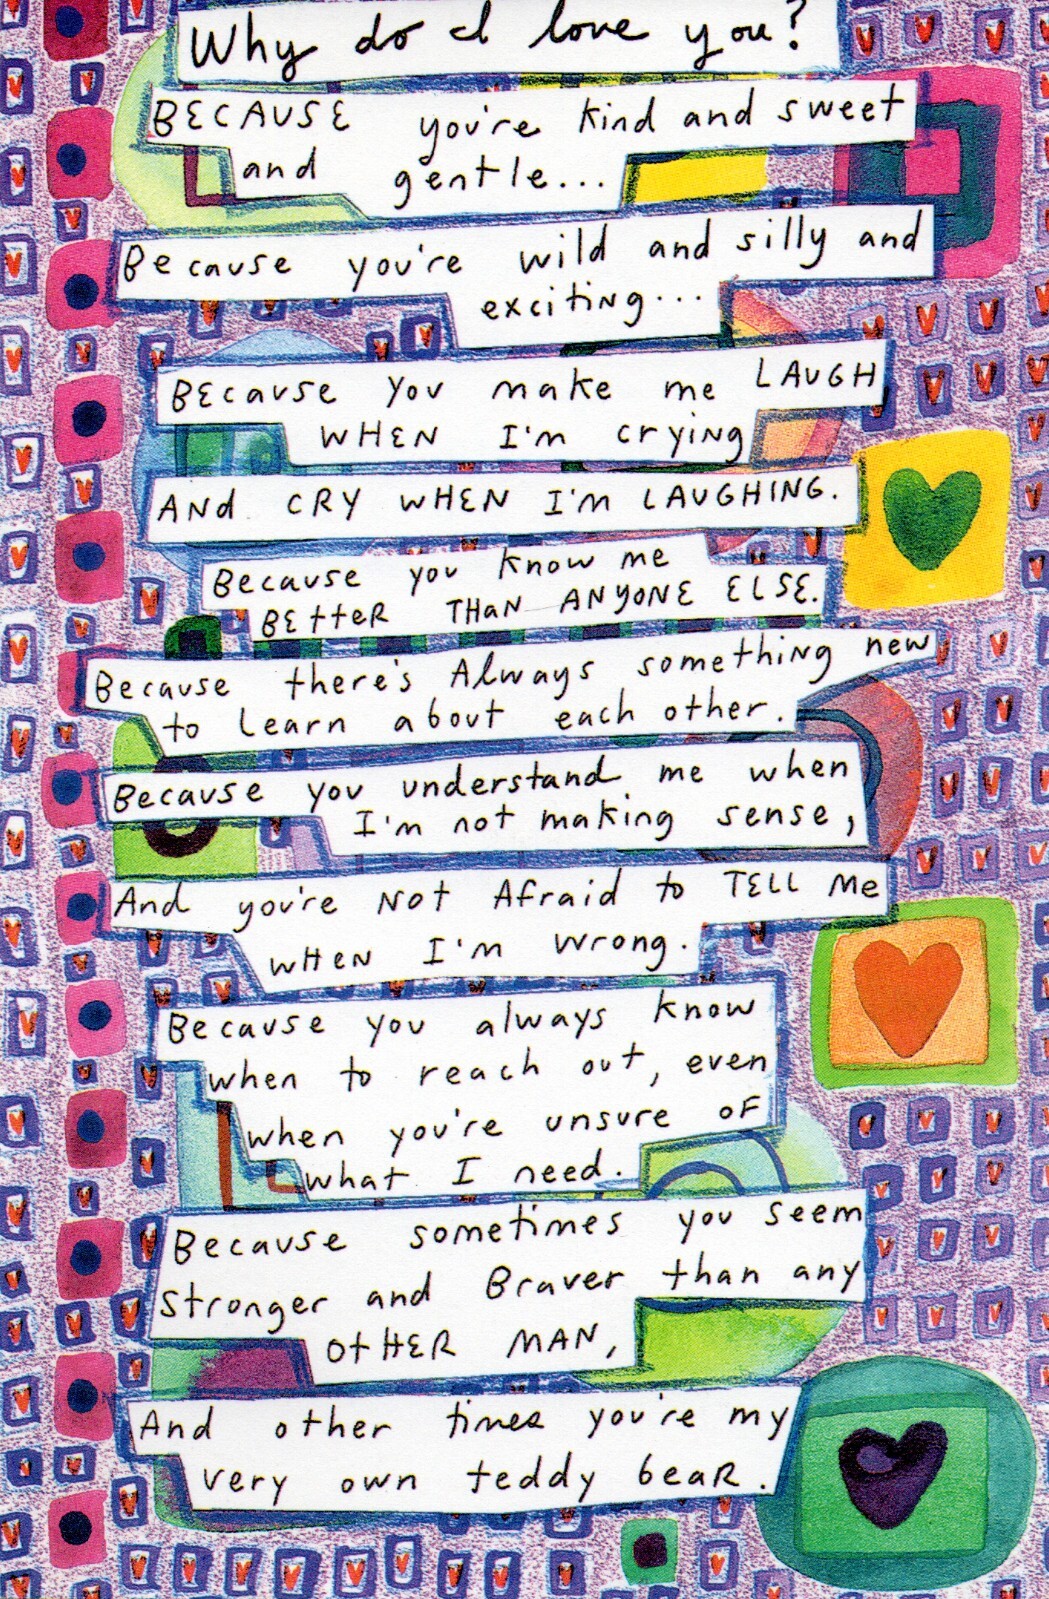 Why do I love you?
BECAUSE you're kind and sweet
and gentle...
Because you're wild and silly and
exciting...
BEcause you make me LAUGH
WHEN I'm crying
ANd CRY WHEN I'M LAUGHING.
Because you know me
BEtteR THaN ANYONE ELSE.
Because there's Always something new
to learn about each other.
Because you understand me when
I'm not making sense,
And you're NOt Afraid to TELL Me
wHeN I'm wrong.
Because you always know
when to reach out, even
when you're unsure oF
what I need.
Because sometimes you seem
stronger and Braver than any
OtHER MAN,
And other times you're my
very own teddy beaR.